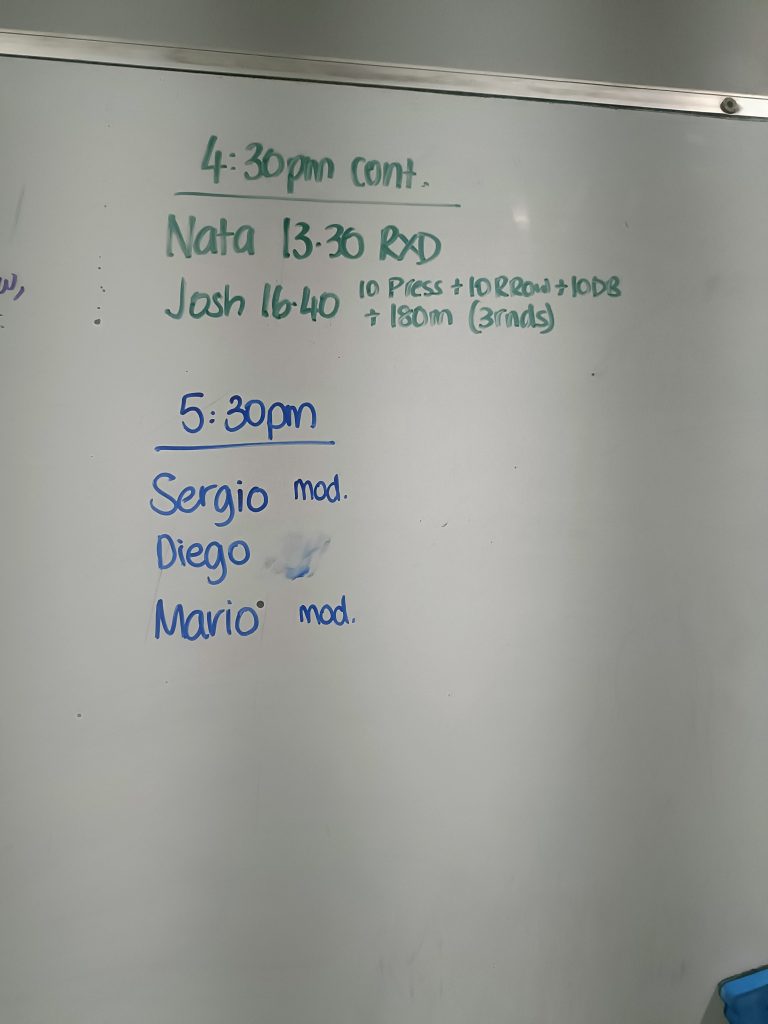 4:30pm cont.
Nata 13.30 RXD
Josh 16.40 10 Press + 10 RRow + 10DB
+ 180m (3rnds)
5:30pm
Sergio mod.
Diego
Mario mod.